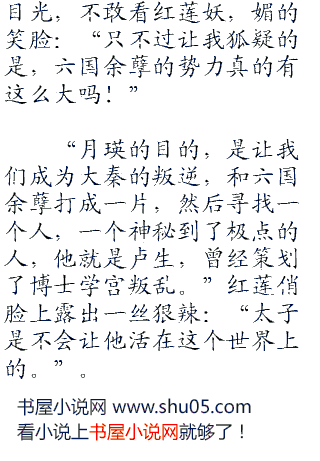 目光，不敢看红莲妖，媚的
笑脸：“只不过让我狐疑的
是，六国余孽的势力真的有
这么大吗！”
“月瑛的目的，是让我
们成为大秦的叛逆，和六国
余孽打成一片，然后寻找一
个人，一个神秘到了极点的
人，他就是卢生，曾经策划
了博士学宫叛乱。”红莲俏
脸上露出一丝狠辣：“太子
是不会让他活在这个世界上
的。”。
书屋小说网 www.shu05.com
看小说上书屋小说网就够了！